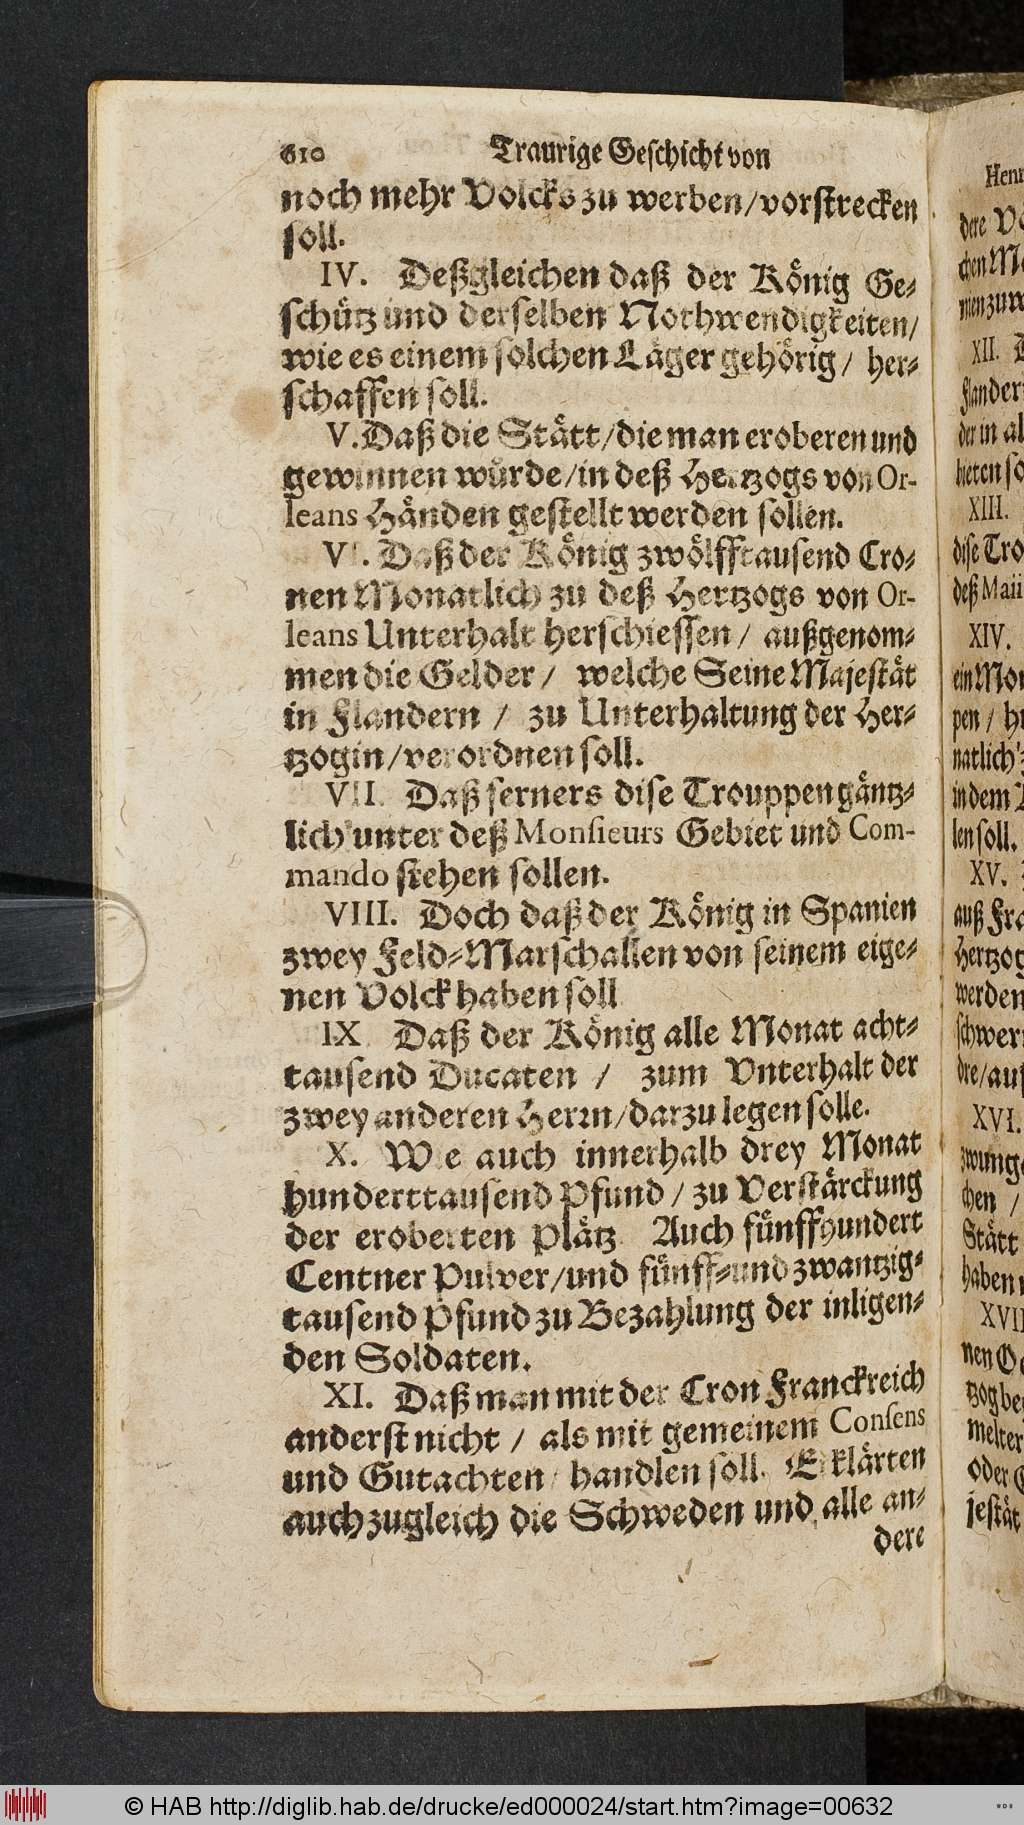 610 Traurige Geschicht von
noch mehr Volcks zu werben/vorstrecken
soll.
IV. Deßgleichen daß der König Ge-
schütz und derselben Nothwendigkeiten/
wie es einem solchen Läger gehörig/ her-
schaffen soll.
V. Daß die Stätt/die man eroberen und
gewinnen würde/in deß Hertzogs von Or-
leans Händen gestellt werden sollen.
VI. Daß der König zwölfftausend Cro-
nen Monatlich zu deß Hertzogs von Or-
leans Unterhalt herschiessen/ außgenom-
men die Gelder/ welche Seine Majestät
in Flandern / zu Unterhaltung der Her-
tzogin/verordnen soll.
VII. Daß ferners dise Trouppen gäntz-
lich unter deß Monsieurs Gebiet und Com-
mando stehen sollen.
VIII. Doch daß der König in Spanien
zwey Feld-Marschallen von seinem eige-
nen Volck haben soll
IX Daß der König alle Monat acht-
tausend Ducaten / zum Vnterhalt der
zwey anderen Herrn/darzu legen solle.
X. Wie auch innerhalb drey Monat
hunderttausend Pfund / zu Verstärckung
der eroberten Plätz Auch fünffhundert
Centner Pulver/und fünff-und zwantzig-
tausend Pfund zu Bezahlung der inligen-
den Soldaten.
XI. Daß man mit der Cron Franckreich
anderst nicht / als mit gemeinem Consens
und Gutachten / handlen soll. Erklärten
auch zugleich die Schweden und alle an-
dere
Hen
dere Vo
chen Mo
men zu w
XII. D
Flander
der in al
bieten so
XIII.
dise Tro
deß Maii
XIV.
ein Mon
pen / hu
natlich
in dem
len soll.
XV.
auß Fra
Hertzog
werden
schwer
dre/auf
XVI.
zwunge
chen /
Stätt
haben
XVII
nen O
tzog be
melter
oder
jestät
© HAB http://diglib.hab.de/drucke/ed000024/start.htm?image=00632